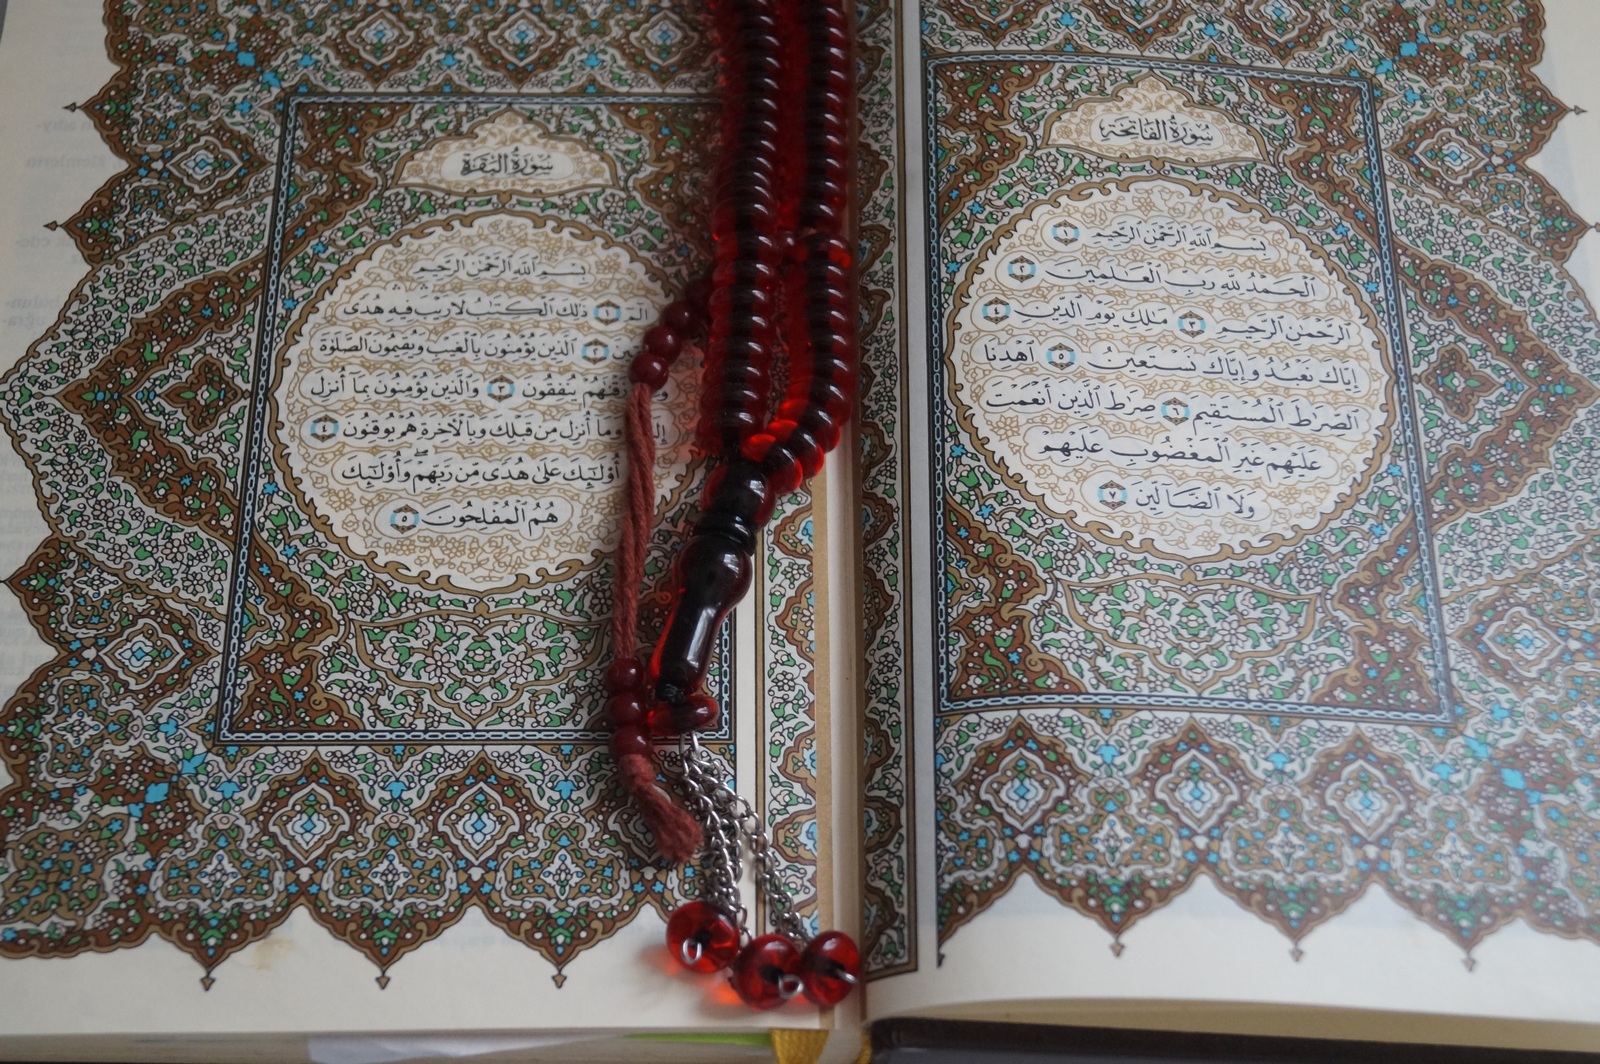 سُورَةُ الفَاتِحَة
بِسْمِ ٱللَّهِ ٱلرَّحْمَٰنِ ٱلرَّحِيمِ ١
ٱلْحَمْدُ لِلَّهِ رَبِّ ٱلْعَٰلَمِينَ ٢
ٱلرَّحْمَٰنِ ٱلرَّحِيمِ ٣ مَٰلِكِ يَوْمِ ٱلدِّينِ ٤
إِيَّاكَ نَعْبُدُ وَإِيَّاكَ نَسْتَعِينُ ٥ ٱهْدِنَا
ٱلصِّرَٰطَ ٱلْمُسْتَقِيمَ ٦ صِرَٰطَ ٱلَّذِينَ أَنْعَمْتَ
عَلَيْهِمْ غَيْرِ ٱلْمَغْضُوبِ عَلَيْهِمْ
وَلَا ٱلضَّآلِّينَ ٧
سُورَةُ البَقَرَة
بِسْمِ ٱللَّهِ ٱلرَّحْمَٰنِ ٱلرَّحِيمِ
الٓمٓ ١ ذَٰلِكَ ٱلْكِتَٰبُ لَا رَيْبَ فِيهِ هُدًى
٢ ٱلَّذِينَ يُؤْمِنُونَ بِٱلْغَيْبِ وَيُقِيمُونَ ٱلصَّلَوٰةَ
يُنفِقُونَ ٣ وَٱلَّذِينَ يُؤْمِنُونَ بِمَآ أُنزِلَ
وَمَآ أُنزِلَ مِن قَبْلِكَ وَبِٱلْأٓخِرَةِ هُمْ يُوقِنُونَ ٤
أُو۟لَٰٓئِكَ عَلَىٰ هُدًى مِّن رَّبِّهِمْ ۖ وَأُو۟لَٰٓئِكَ
هُمُ ٱلْمُفْلِحُونَ ٥